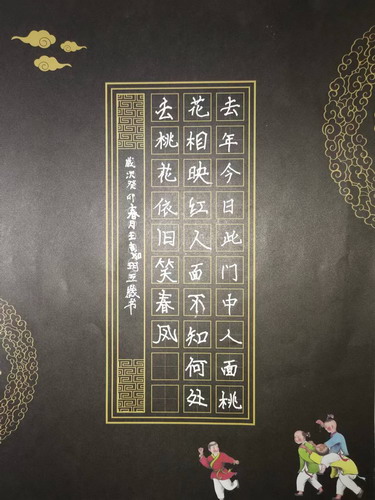 去年今日此门中人面桃
花相映红人面不知何处
去桃花依旧笑春风
癸卯春月 书